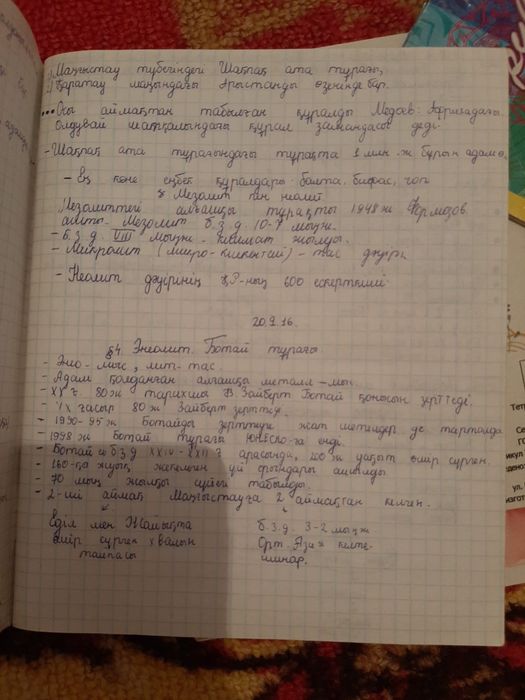 Маңғыстау түбегіндегі Шақпақ ата тұрағы,
Қаратау маңындағы Арыстанды өзенінде бар.
Осы аймақтан табылған құралды Медоев: Африкадағы
Олдувай шатқалындағы құрал замандасы деді.
- Шақпақ ата тұрағындағы тұрақта 1 млн ж бұрын адам ө.
- Ең көне еңбек құралдары - балта, бифас, чоп
§ Мезолит пен неолит
Мезолиттегі алғашқы тұрақты 1948 ж Формозов
Мезолит б.з.д 10-7 мыңж.
- Б.з.д VIII мыңж - климат жылыды.
- Микролит (микро - кішкентай) - тас дәуірі
- Неолит дәуірінің ҚР-ның 600 ескерткіші
20.9.16.
§4. Энеолит. Ботай тұрағы
- Энео - мыс, лит - тас.
- Адам қолданған алғашқы металл - мыс.
- XX ғ. 80 ж тарихшы В. Зайберт Ботай қонысын зерттеді.
80 ж Зайберт зерттеу.
- 1990-95 ж Ботайды зерттеуге жат шетелдер де тартылды
- 1998 ж Ботай тұрағы Юнеско-ға енді.
- Ботай б.з.д XXIV - XXII ғ арасында, 200 ж уақыт өмір сүрген.
- 160-қа жуық жекелеген үй орындары ашылды.
- 70 мың жылқы сүйегі табылды.
- 2-ші аймақ Маңғыстауға 2 аймақтан келген.
Еділ мен Жайықта
өмір сүрген хвалын
тайпасы
б.з.д. 3-2 мыңж
Орт. Азия келте-
минар.